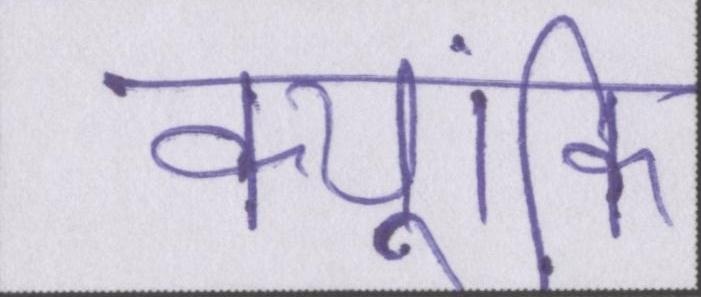 क्यूांकि